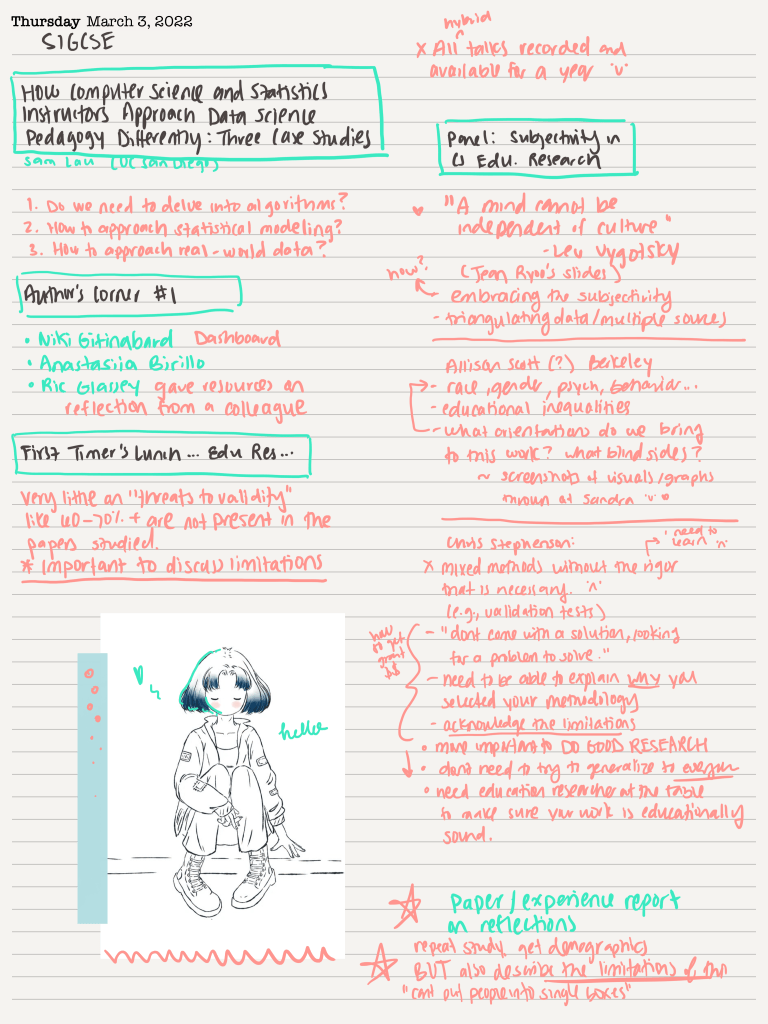 Thursday March 3, 2022
SIGCSE
How Computer Science and Statistics
Instructors Approach Data Science
Pedagogy Differently: Three Case Studies
Sam Lau (UC San Diego)
1. Do we need to delve into algorithms?
2. How to approach statistical modeling?
3. How to approach real-world data?
Author's Corner #1
• Niki Gitinabard Dashboard
• Anastasiia Birillo
• Ric Glassey gave resources on
reflection from a colleague
First Timer's Lunch... Edu Res...
Very little on "threats to validity"
like 60-70% + are not present in the
papers studied.
* Important to discuss limitations
hello
hybrid
x All talks recorded and
available for a year
Panel: Subjectivity in
CS Edu. Research
"A mind cannot be
independent of culture"
- Lev Vygotsky
(Jean Ryoo's slides)
how?
embracing the subjectivity
- triangulating data/multiple sources
Allison Scott (?) Berkeley
- race, gender, psych, behavior...
- educational inequalities
- what orientations do we bring
to this work? what blind sides?
~ screenshots of visuals/graphs
thrown at Sandra
Chris Stephenson:
need to
learn
x mixed methods without the rigor
that is necessary. "^"
(e.g., validation tests)
how
to get
grant
- "dont come with a solution, looking
for a problem to solve."
- need to be able to explain why you
selected your methodology
- acknowledge the limitations
• more important to DO GOOD RESEARCH
• dont need to try to generalize to everyone
• need education researcher at the table
to make sure your work is educationally
sound.
Paper/experience report
on reflections
repeat study get demographics
BUT also describe the limitations of this
"cant put people into single boxes"